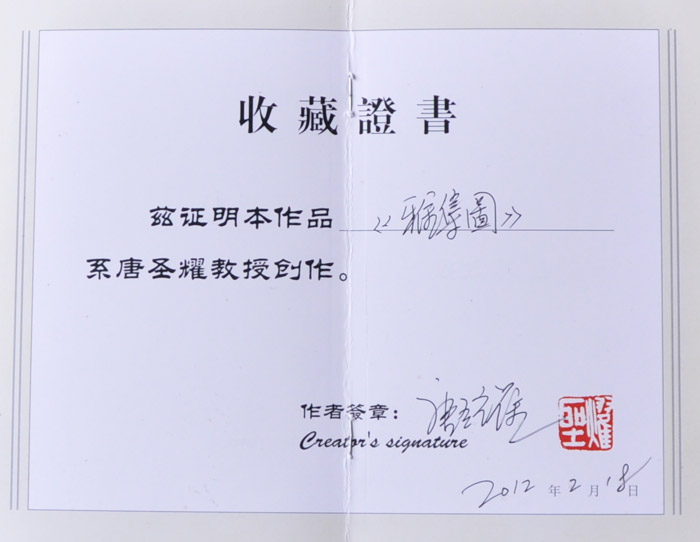 收藏證書
兹证明本作品《雅集圖》
系唐圣耀教授创作。
作者签章：唐圣耀
圣耀
Creator's signature
2012年2月18日